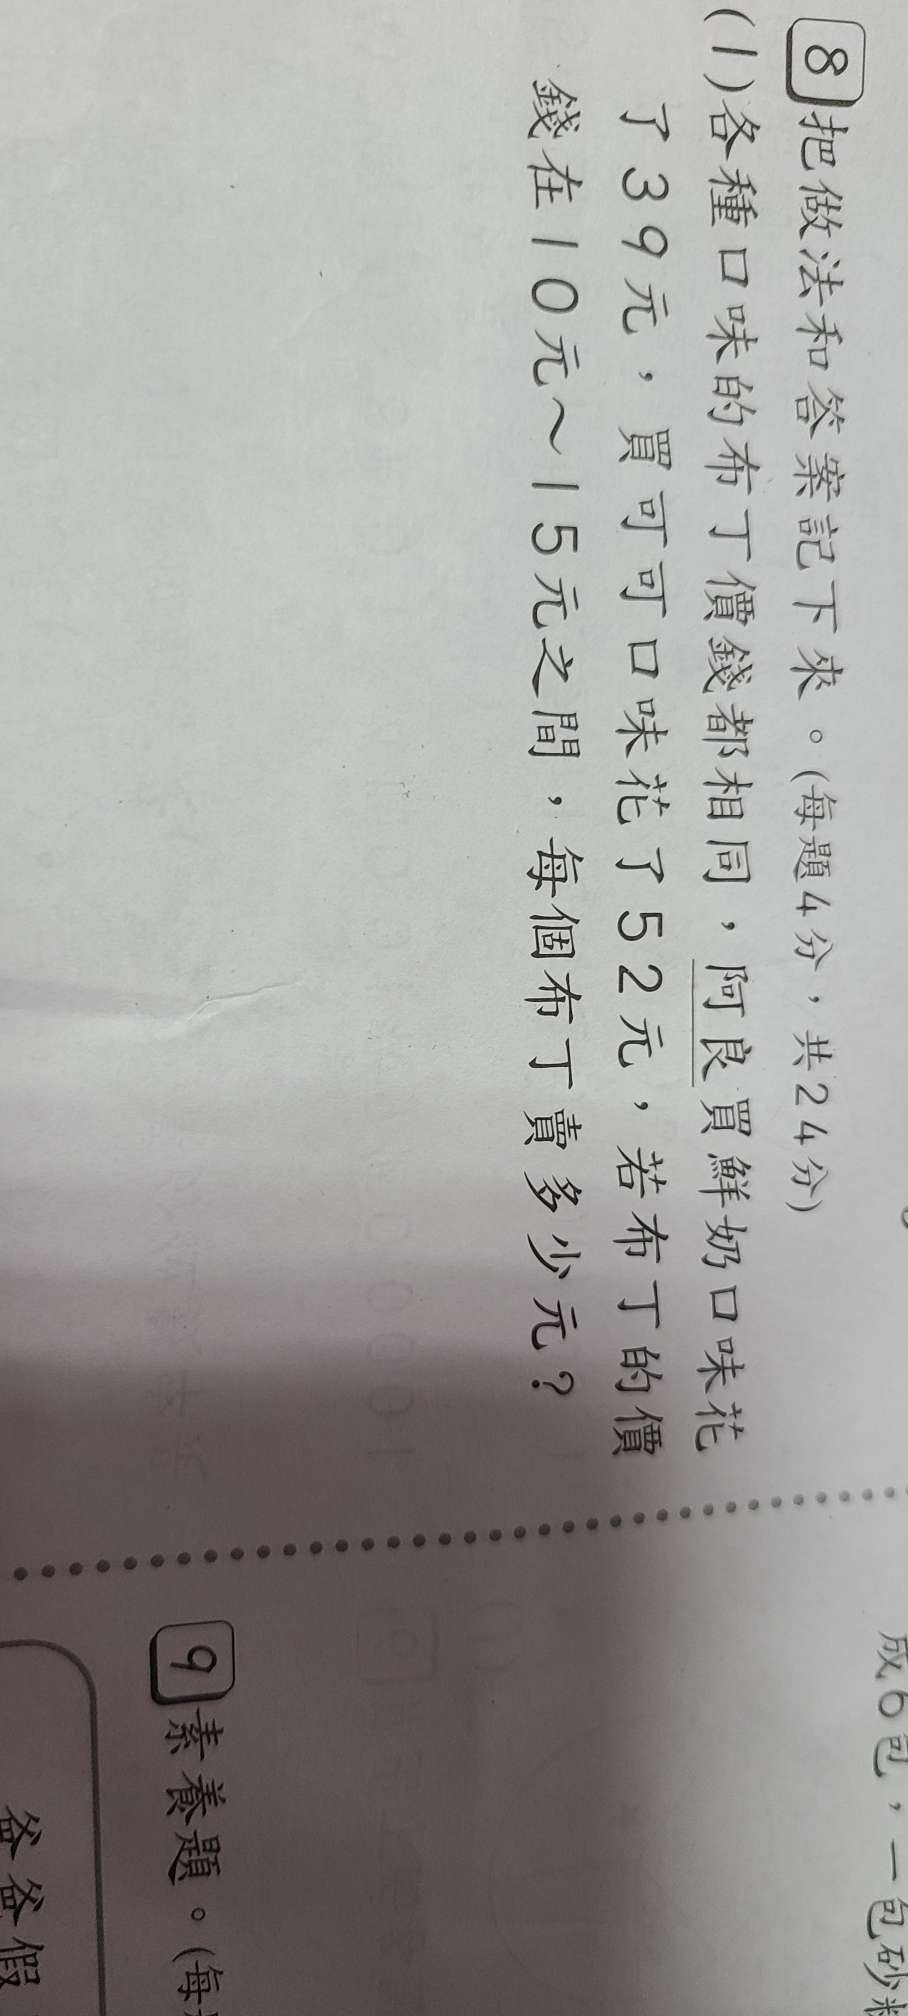 8 把做法和答案記下來。(每題4分，共24分)
(1)各種口味的布丁價錢都相同，阿良買鮮奶口味花
了39元，買可可口味花了52元，若布丁的價
錢在10元～15元之間，每個布丁賣多少元？
成6包，一包砂
9 素養題。(每
爸爸假